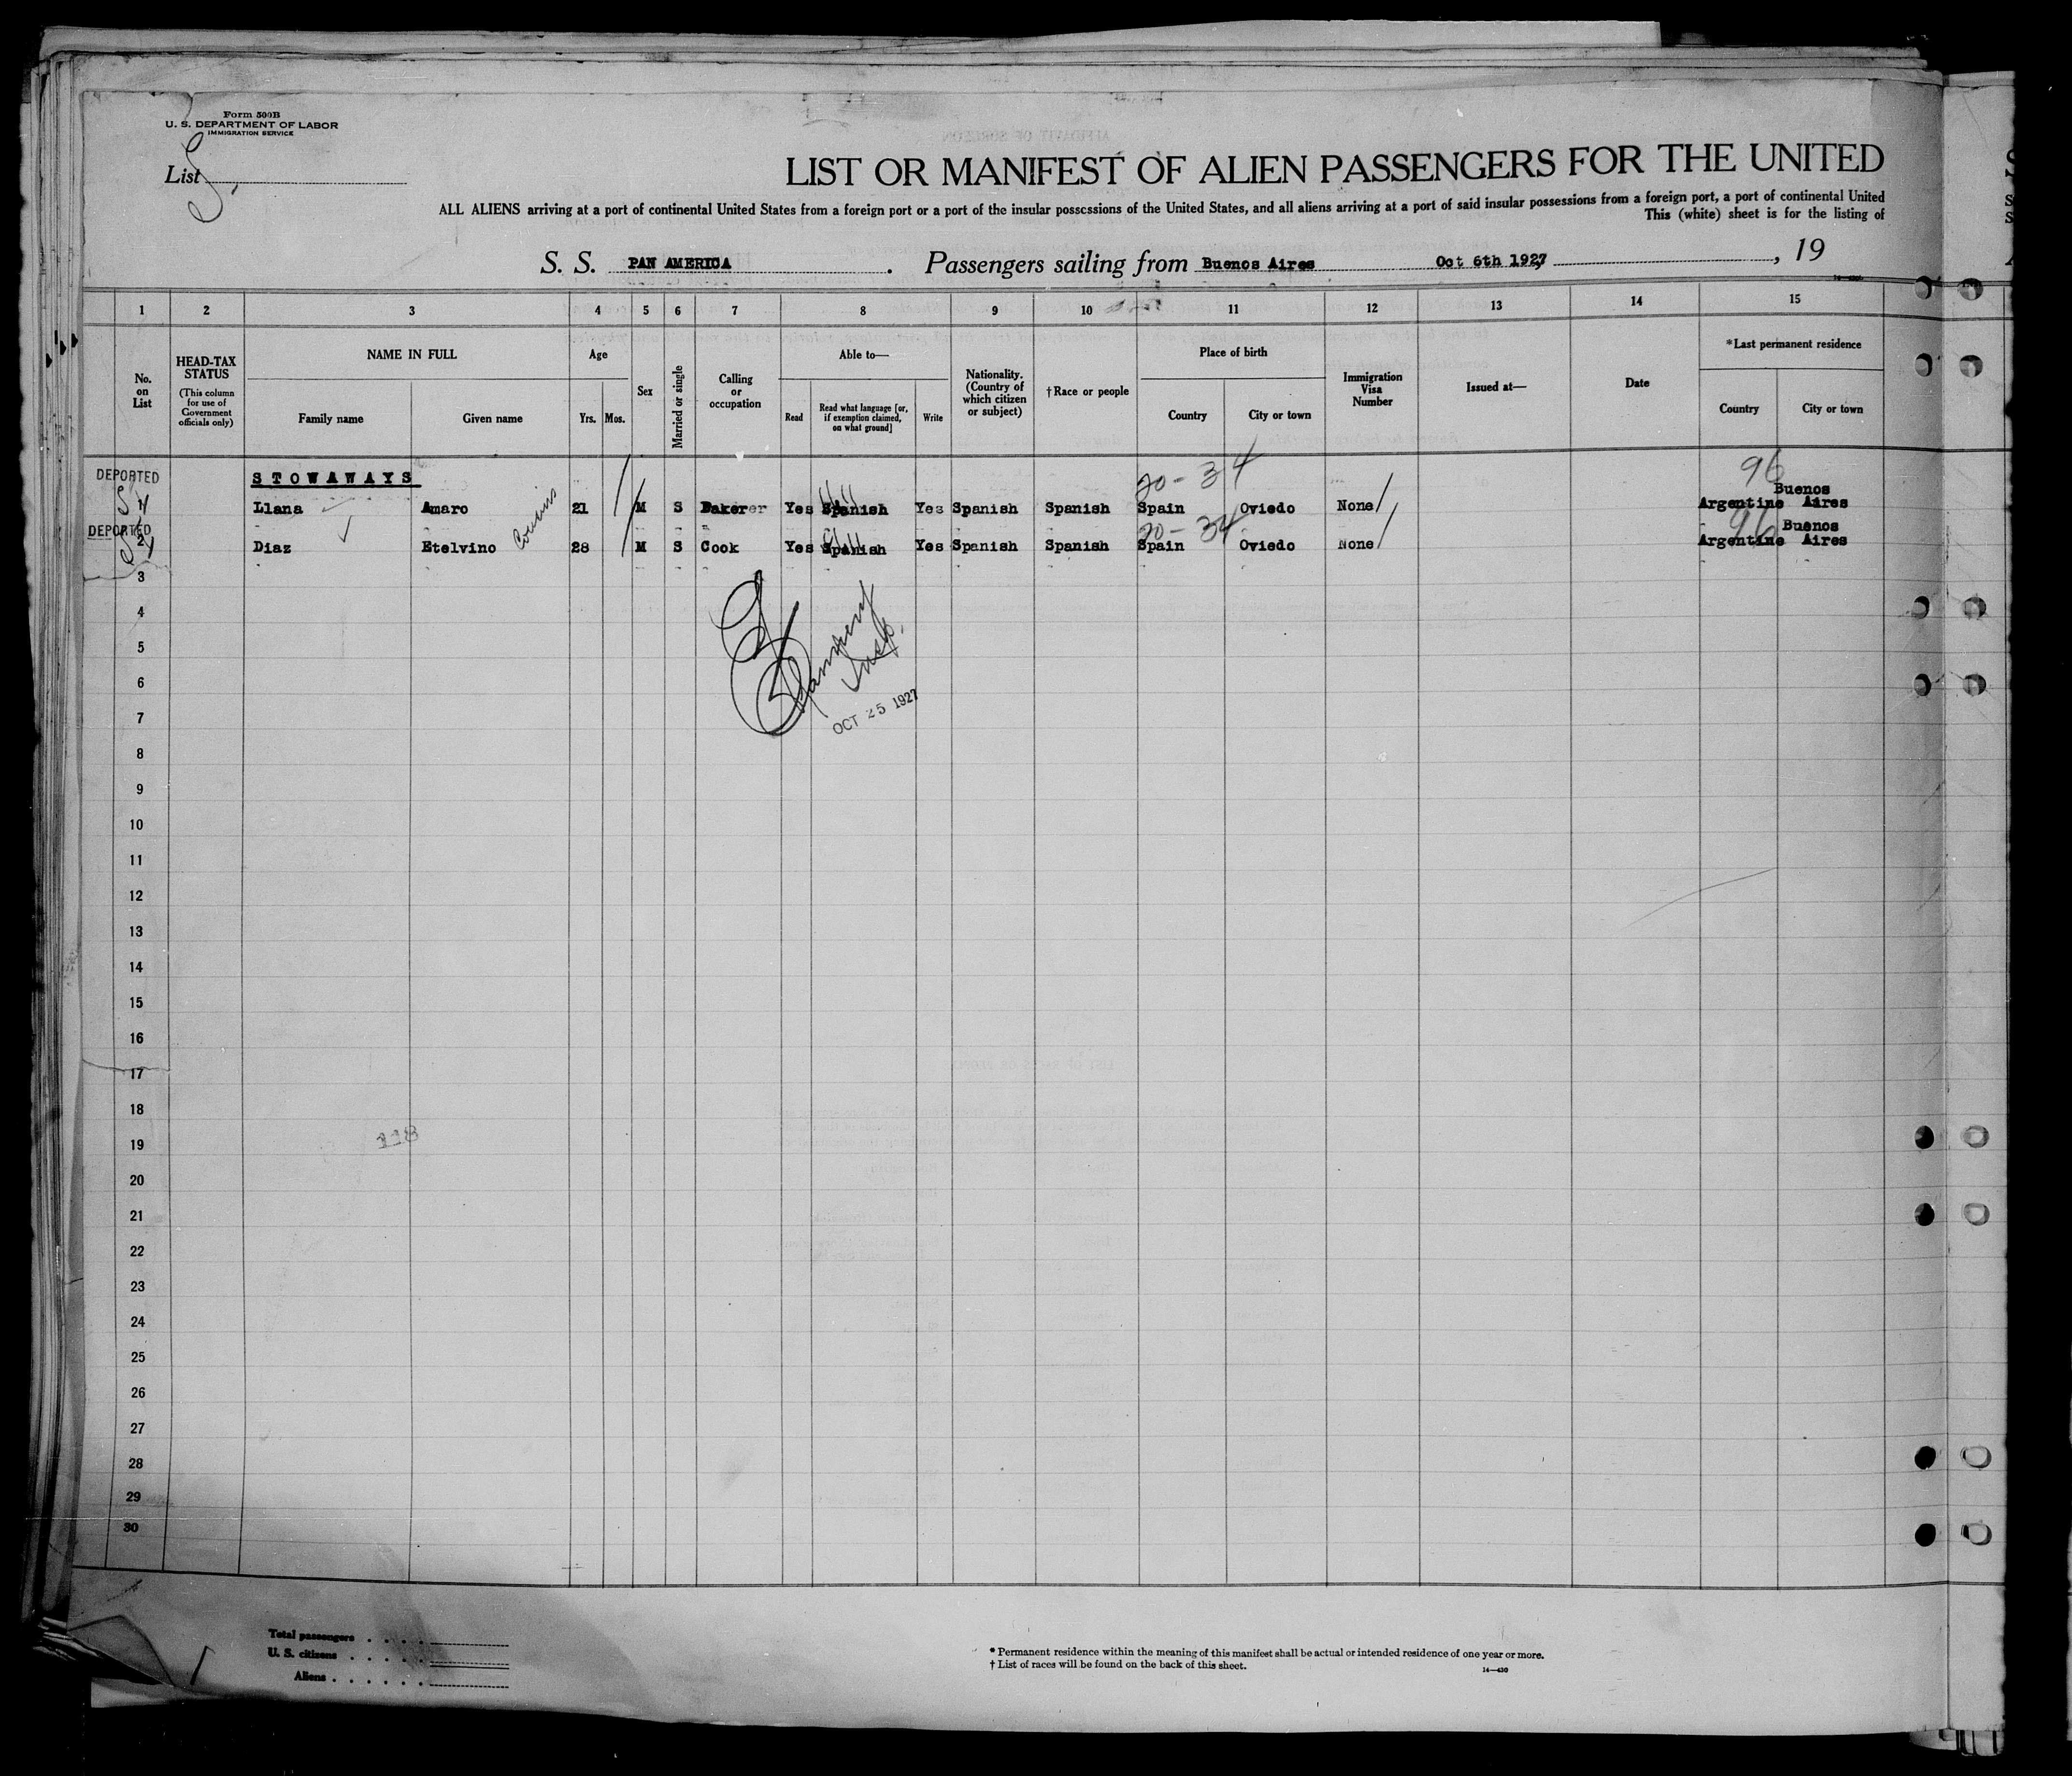 Form 500B
U. S. DEPARTMENT OF LABOR
IMMIGRATION SERVICE
List
LIST OR MANIFEST OF ALIEN PASSENGERS FOR THE UNITED
ALL ALIENS arriving at a port of continental United States from a foreign port or a port of the insular possessions of the United States, and all aliens arriving at a port of said insular possessions from a foreign port, a port of continental United
This (white) sheet is for the listing of
S. S. PAN AMERICA. Passengers sailing from Buenos Aires Oct 6th 1927, 19
1 2 3 4 5 6 7 8 9 10 11 12 13 14 15
No. on List
HEAD-TAX STATUS
(This column for use of Government officials only)
NAME IN FULL
Family name Given name
Age
Yrs. Mos.
Sex
Married or single
Calling or occupation
Able to—
Read
Read what language [or, if exemption claimed, on what ground]
Write
Nationality. (Country of which citizen or subject)
†Race or people
Place of birth
Country City or town
Immigration Visa Number
Issued at—
Date
*Last permanent residence
Country City or town
DEPORTED
STOWAWAYS
20-34 96
Llana Amaro 21 M S Baker Yes Spanish Yes Spanish Spanish Spain Oviedo None Argentine Buenos Aires
DEPORTED
Cousins
20-34 96
2 Diaz Etelvino 28 M S Cook Yes Spanish Yes Spanish Spanish Spain Oviedo None Argentine Buenos Aires
3
4
5
Insp.
6
7
OCT 25 1927
8
9
10
11
12
13
14
15
16
17
18
19
118
20
21
22
23
24
25
26
27
28
29
30
Total passengers
U. S. citizens
Aliens
* Permanent residence within the meaning of this manifest shall be actual or intended residence of one year or more.
† List of races will be found on the back of this sheet.
14—430